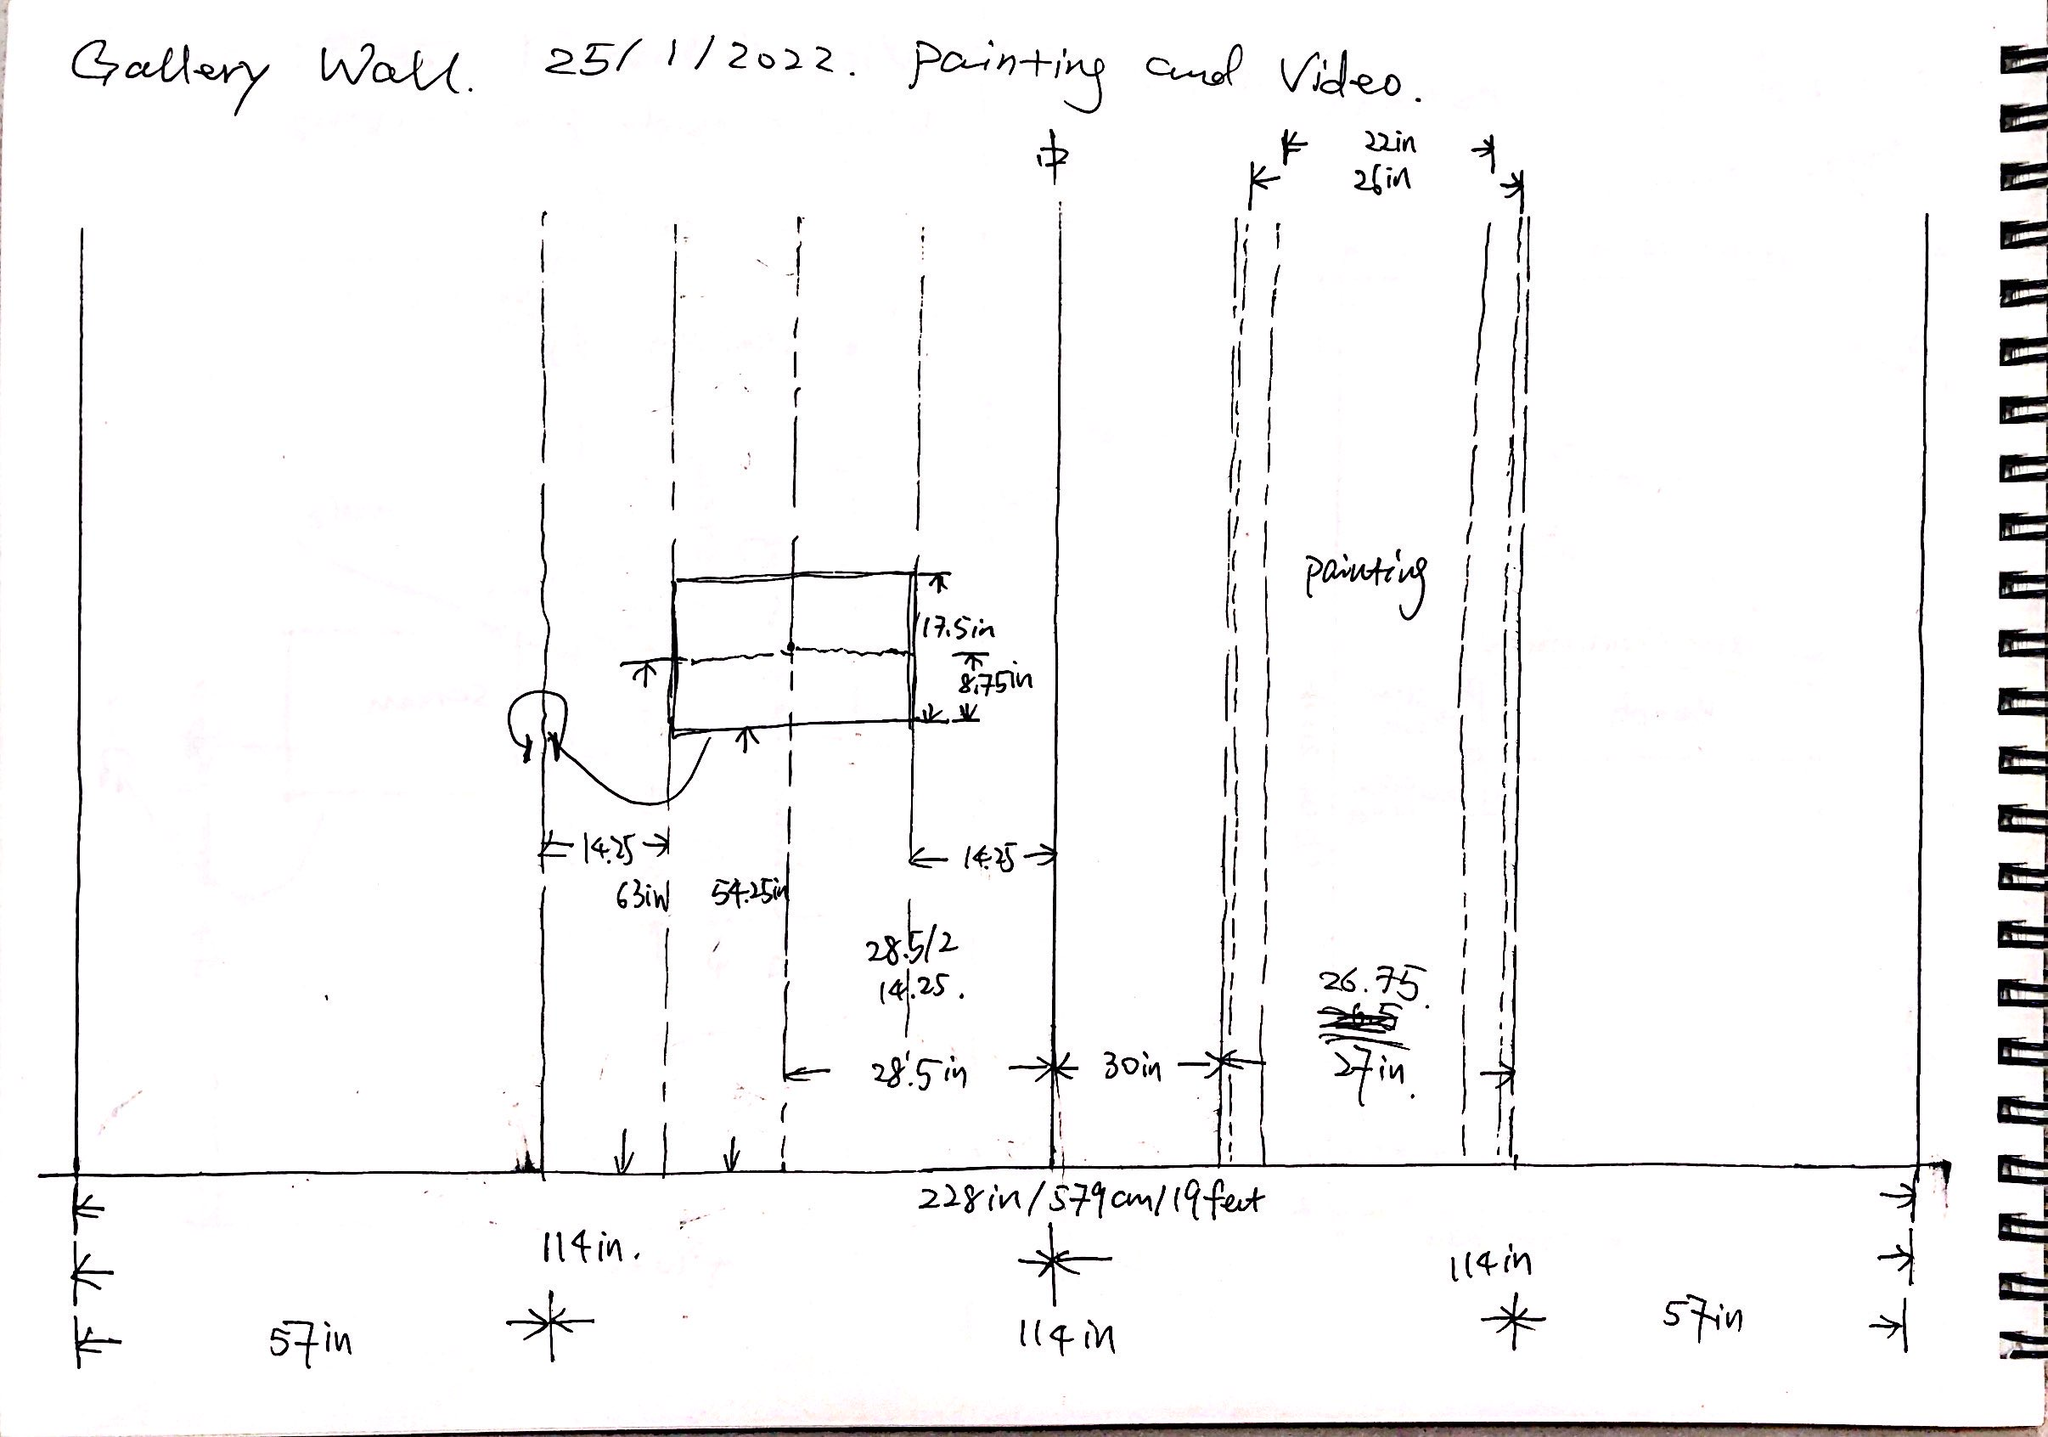 Gallery Wall. 25/1/2022. Painting and Video.
22in
26in
painting
17.5in
8.75in
14.25
14.25
63in
54.25in
28.5/2
14.25.
26.75.
28.5in
30in
27in.
228in/579cm/19feet
114in.
114in
57in
114in
57in